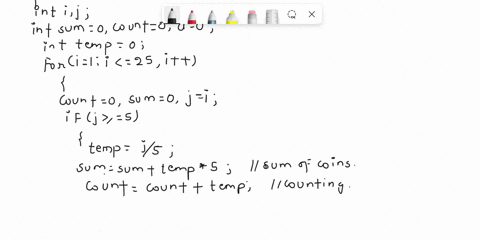 int i,j;
int sum=0, count=0,
int temp=0;
for(i=1; i<=25, i++)
{
count=0, sum=0, j=i;
if(j>=5)
{
temp= j/5;
sum=sum+temp*5; //sum of coins.
count= count+temp; //counting.